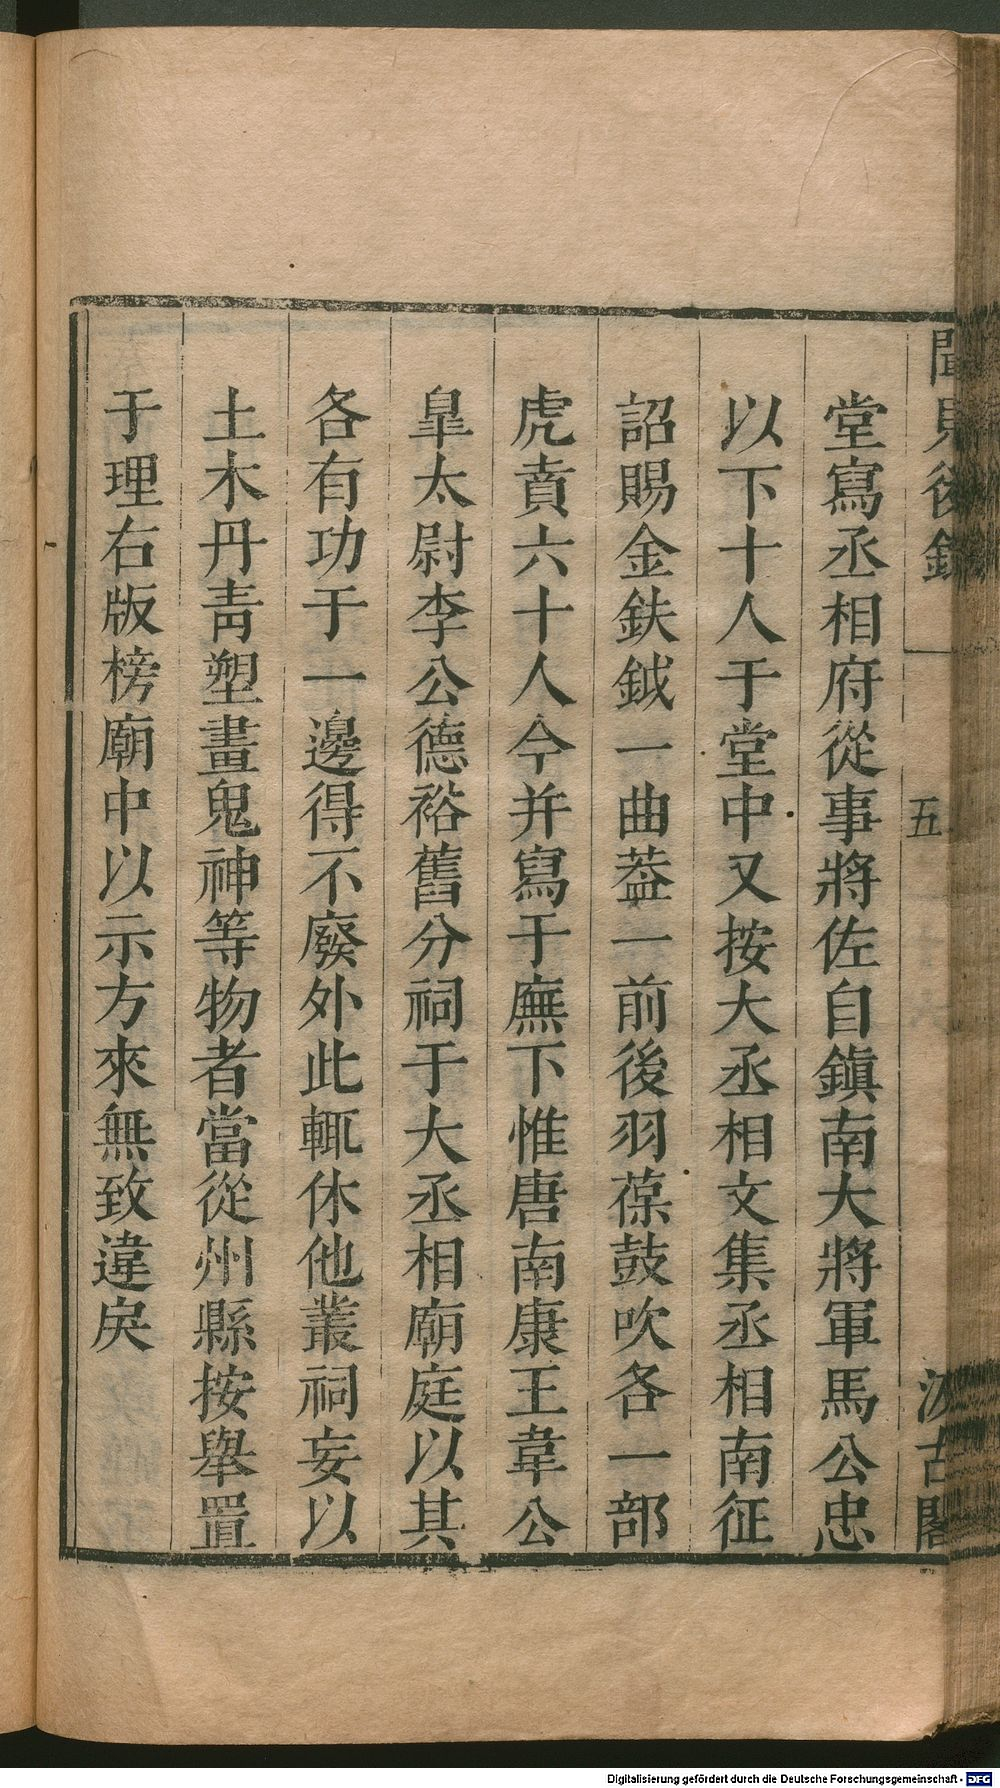 聞見後錄
五
汲古閣
堂寫丞相府從事將佐自鎮南大將軍馬公忠
以下十人于堂中又按大丞相文集丞相南征
詔賜金鈇鉞一曲葢一前後羽葆鼓吹各一部
虎賁六十人今并寫于廡下惟唐南康王韋公
臯太尉李公德裕舊分祠于大丞相廟庭以其
各有功于一邊得不廢外此輒休他叢祠妄以
土木丹青塑畫鬼神等物者當從州縣按舉置
于理右版榜廟中以示方來無致違戾
Digitalisierung gefördert durch die Deutsche Forschungsgemeinschaft - DFG